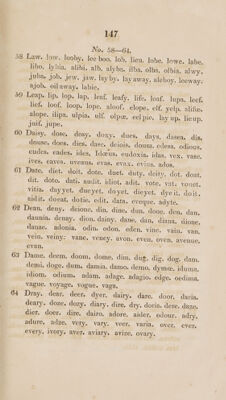 147
No. 58—64.
58 Law. low. looby. lee boo. lob. lieu. lobe. lowe. labe.
libo. lybia. alibi. alb. alybe. ilba. olbo. olbia. alwy.
juba. job. jew. jaw. layby. layaway. aleboy. leeway.
ajob. oil away. labie.
59 Leap. lip. lop. lap. leaf. leafy. life. loaf. lupa. leef.
lief. loof. loop. lope. aloof. elope. elf. yelp. alife.
alope. ilipa. ulpia. ulf. olpæ. eelpie. lay up. lie up.
juif. jupe.
60 Daisy. dose. desy. doxy. dues. days. dasea. dis.
deuse. does. dies. daec. deiois. dousa. edesa. odious.
eudes. eades. ides. Idæus. eudoxia. idas. vex. vase.
ives. eaves. uvesus. evas. evax. evius. ados.
61 Date. diet. doit. dote. duet. duty. deity. dot. doat.
dit. doto. dati. audit. idiot. adit. vote. vat. vouet.
vitia. dayyet. dueyet. doyet. dieyet. dye it. do it.
aidit. doeat. dotie. edit. data. eveque. adyte.
62 Dean. deny. deione. din. dine. dun. done. don. dan.
daunia. denay. dion. daisy. dane. dan. diana. dione.
danae. adonia. odin. odon. eden. vine. vain. van.
vein. veiny. vane. veney. avon. even. oven. avenue.
evan.
63 Dame. deem. doom. dome. dim. dug. dig. dog. dam.
demi. doge. dum. damia. damo. demo. dyme. iduma.
idiom. odium. adam. adage. adagio. edge. oedima.
vague. voyage. vogue. vaga.
64 Dray. dear. deer. dyer. dairy. dare. door. daria.
deary. doze. dozy. diary. dire. dry. doris. dese. daze.
dier. doer. dire. dairo. adore. aider. odour. adry.
adure. adze. very. vary. veer. varia. over. ever.
every. ivory. aver. aviary. avize. ovary.